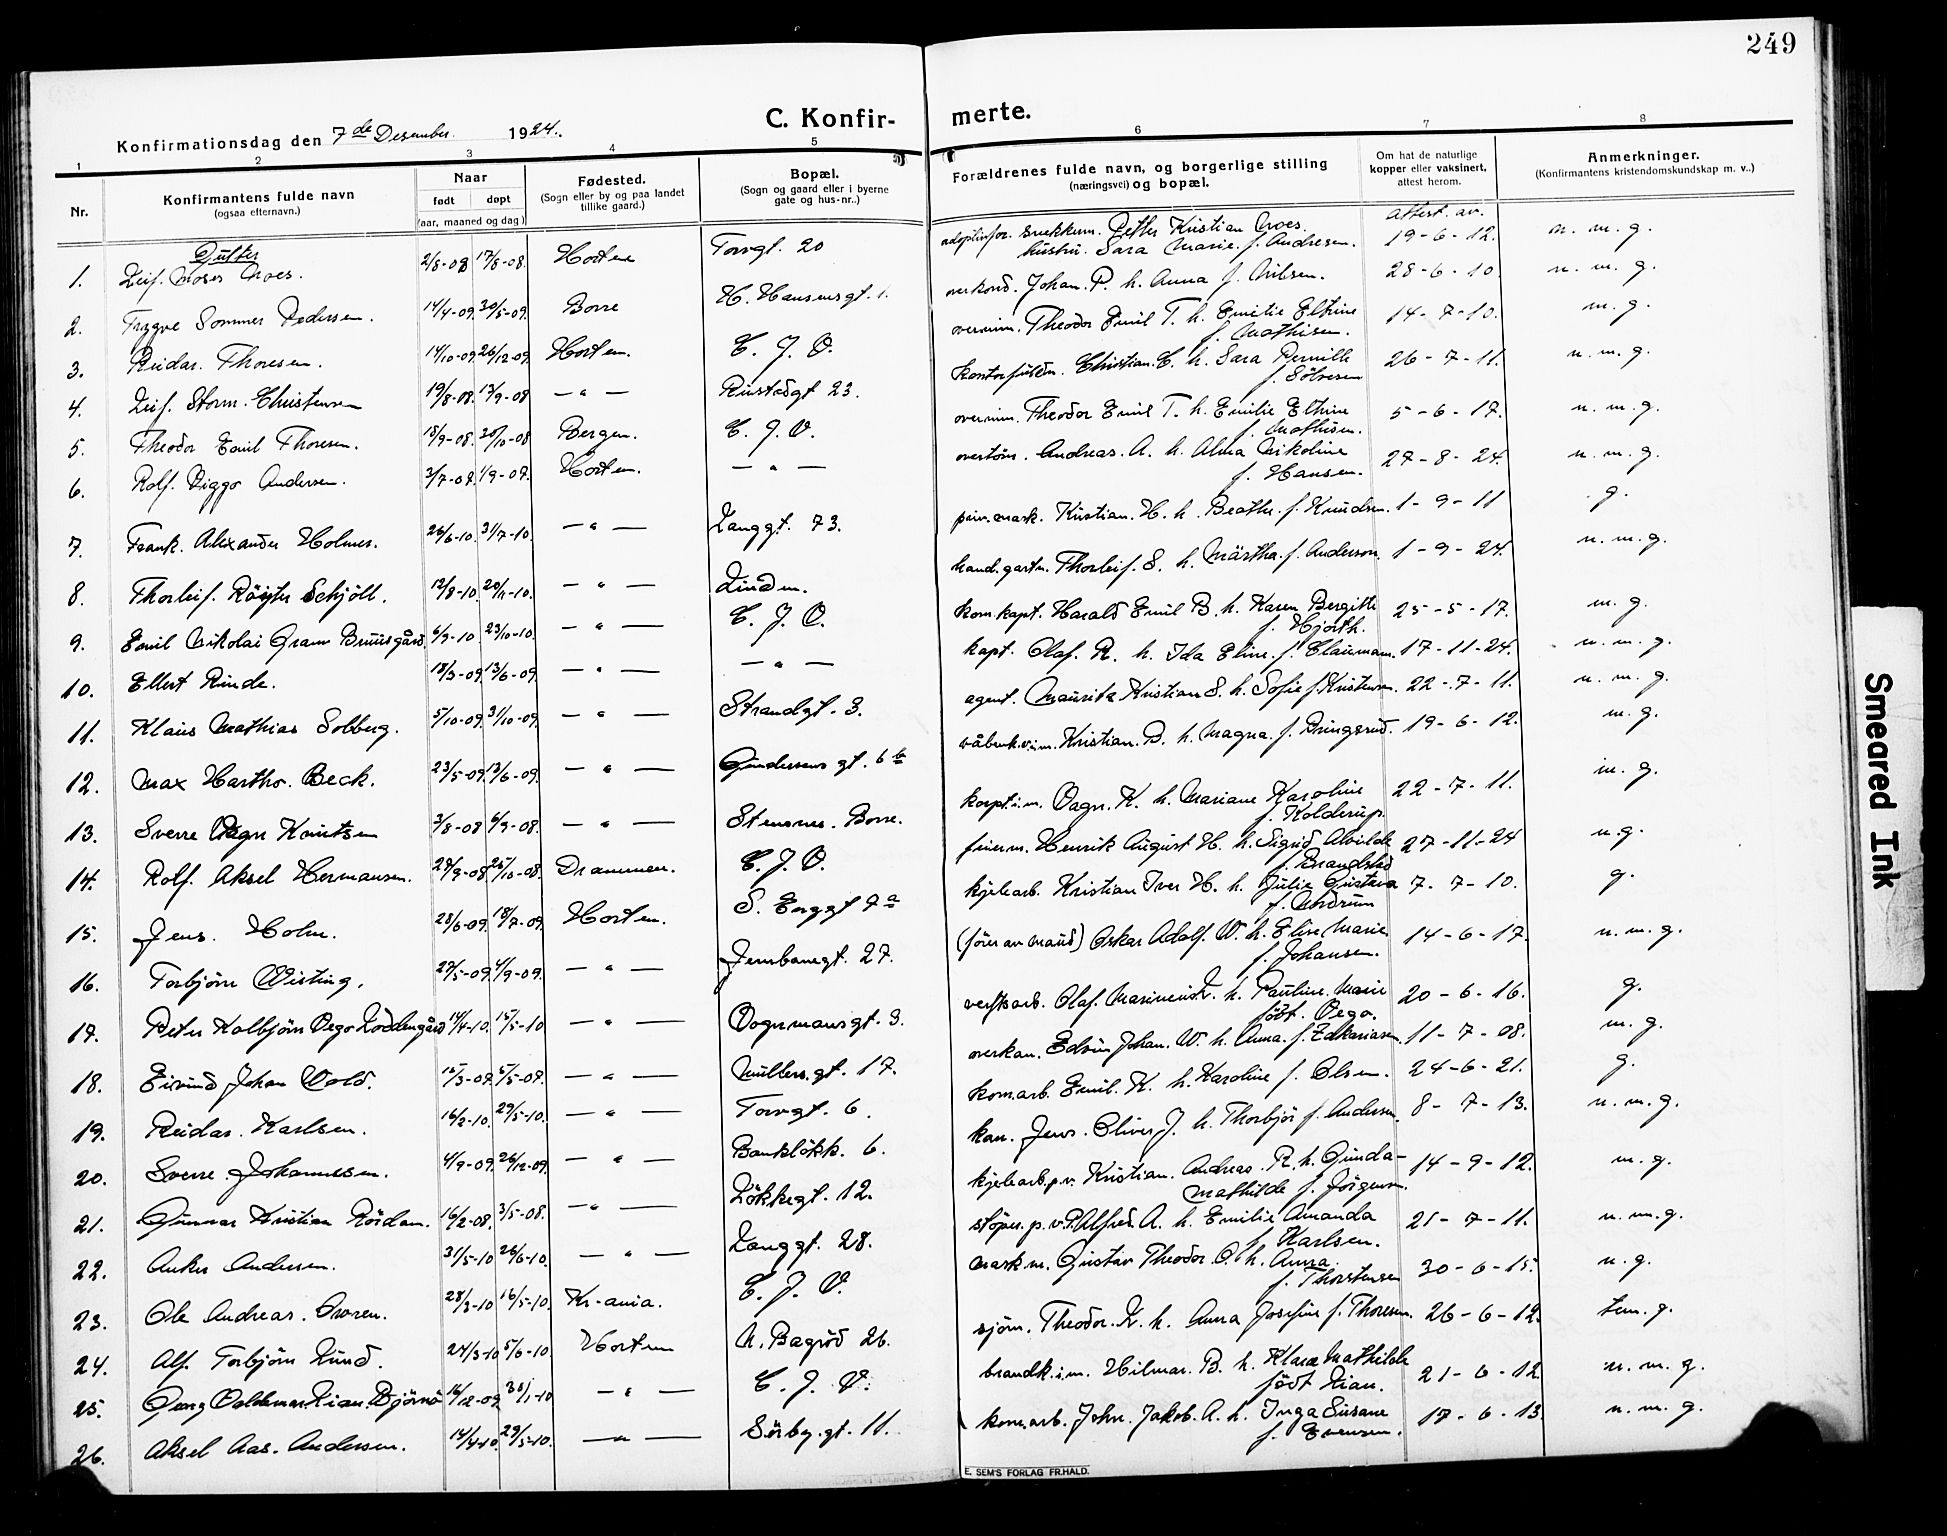 249
C. Konfir-
merte.
Konfirmationsdag den 7de Desember. 1924.
1 2 3 4 5
6 7 8
Nr.
Konfirmantens fulde navn
(ogsaa efternavn.)
Naar
født døpt
(aar, maaned og dag)
Fødested.
(Sogn eller by og paa landet
tillike gaard.)
Bopæl.
(Sogn og gaard eller i byerne
gate og hus-nr..)
Forældrenes fulde navn, og borgerlige stilling
(næringsvei) og bopæl.
Om hat de naturlige
kopper eller vaksinert,
attest herom.
Anmerkninger.
(Konfirmantens kristendomskundskap m. v.)
Gutter
1. Leif. Moses Moes. 2/8-08 17/8-08. Horten Torvgt. 20
2. Trygve Sommer Pedersen. 14/4-09. 30/5-09. Borre H. Hansensgt. 1.
3. Reidar. Thoresen. 14/10-09. 26/12-09. Horten. C. J. V.
4. Leif. Storm. Christensen 19/8-08. 13/9-08 — " — Rustadgt 23.
5. Theodor Emil Thoresen. 18/9-08. 20/10-08 Bergen. C. J. V.
6. Rolf. Viggo Andersen. Horten. — " —
7. Frank. Alexander Holmer. 26/6-10. 31/7-10. — " — Langgt. 73.
8. Thorleif. Röyter Schjöll. 12/8-10. 20/11-10. — " — Linden.
9. Emil Nikolai Gram Bruusgård. 6/9-10 23/10-10. — " — C. J. V.
10. Ellert Rinde. 18/3-09. 13/6-09. — " — — " —
11. Klaus Mathias Solberg. 5/10-09. 31/10-09. — " — Strandgt. 3.
12. Max Hartho. Beck. 23/5-09. 13/6-09. — " — Gundersens gt. 6 b
13. Sverre Vagn Knutsen 3/8-08 6/9-08. — " — Stensnes. Borre.
14. Rolf. Aksel Hermansen. 29/9-08. 25/10-08. Drammen. C. J. V.
15. Jens. Holm. 28/6-09. 18/7-09 Horten. S. Enggt 7 a
16. Torbjörn Wisting. 29/5-09. 4/9-09. — " — Jernbanegt. 27.
17. Peter Kolbjörn Vego Loddengård 14/4-10. 15/5-10 — " — Vognmansgt. 3.
18. Eivind Johan Wold. — " — Müllers.gt. 17.
19. Reidar. Karlsen. 16/2-10. 29/5-10. — " — Torvgt. 6.
20. Sverre Johannessen. 4/9-09. 26/12-09. — " — Bankløkk. 6.
21. Gunnar Kristian Rördam. 16/2-08. 3/5-08. — " — Løkkegt. 12.
22. Anker Andersen. 31/5-10 26/6-10. — " — Langgt. 28.
23. Ole Andreas. 28/3-10 16/5-10. Kr-ania. C. J. V.
24. Alf. Torbjörn Lund. 24/3-10 5/6-10. Horten N. Bagrød 26.
25. Georg Valdemar Kian. Björnö 16/12-09. 30/1-10 — " — C. J. V.
26. Aksel Aas. Andersen. 14/4-10. 29/5-10. — " — Sörby.gt. 11.
attest. av.
adoptivfor. snekkerm. Petter Kristian Moes.
hustru. Sara Marie. f. Andresen. 19-6-12. n. m. g.
overkond. Johan. P. h. Anna f. Nilsen. 28-6-10. n. m. g.
overmin. Theodor Emil T. h. Emilie Eltrine
f. Mathisen. 14-7-10. m. g.
kontorfuldm. Christian. C. h. Sara Pernille
f. Sölvesen 26-7-11. n. m. g.
overmin. Theodor Emil T. h. Emilie Eltrine
f. Mathisen. 5-6-17. n. m. g.
overtöm. Andreas. A. h. Alma Nikoline
f. Hansen. 27-8-24. n. m. g.
Kristian. H. h. Beathe. f. Knudsen. 1-9-11 g.
hand.gartn. Thorleif. S. h. Märtha. f. Anderson. 1-9-24. n. m. g.
kom.kapt. Harald Emil B. h. Karen Bergitte
f. Hjorth. 25-5-17. m. g.
kapt. Olaf. R. h. Ida Eline. f. Clausmann. 17-11-24. n. m. g.
agent. Mauritz Kristian S. h. Sofie f. Kristensen. 22-7-11. n. m. g.
Kristian. B. h. Magna. f. Bringsrud. 19-6-12. m. g.
Vagn. K. h. Mariane Karoline
f. Kolderup. 22-7-11. m. g.
feierm. Henrik August H. h. Sigrid Alvilde
f. Brandstad 27-11-24 n. g.
kjelearb. Kristian Iver H. h. Julie Gustava
f. Undrum 7-7-10. g.
(förer av Maud) Oskar Adolf. W. h. Eline Marie
f. Johansen. 14-6-17. n. m. g.
verftsarb. Olaf. Marinius L. h. Pauline. Marie
født. Vego. 20-6-16. g.
overkan. Edvin Johan. W. h. Anna. f. Zakariasen. 11-7-08. m. g.
kom.arb. Emil. K. h. Karoline f. Olsen. 24-6-21. g.
kan. Jens. Oliver J. h. Thorbjör f. Andersen. 8-7-13. n. m. g.
kjelearb.p.v. Kristian. Andreas. R. h. Gunda-
Mathilde f. Jörgensen. 14-9-12. m. g.
stöper. p. v. P. Alfred. A. h. Emilie Amanda
f. Karlsen. 21-7-11. n. m. g.
Gustav Theodor O. h. Anna
f. Thorstensen 30-6-15. n. g.
sjöm. Theodor. L. h. Anna Josefine f. Thoresen. 26-6-12. tem. g.
brandk.i.m. Hilmar. B. h. Klara Mathilde
født Kian. 21-6-12. n. m. g.
kom.arb. John. Jakob. A. h. Inga Susane
f. Evensen. 17-6-13. n. m. g.
E. SEM'S FORLAG FR.HALD.
Smeared Ink